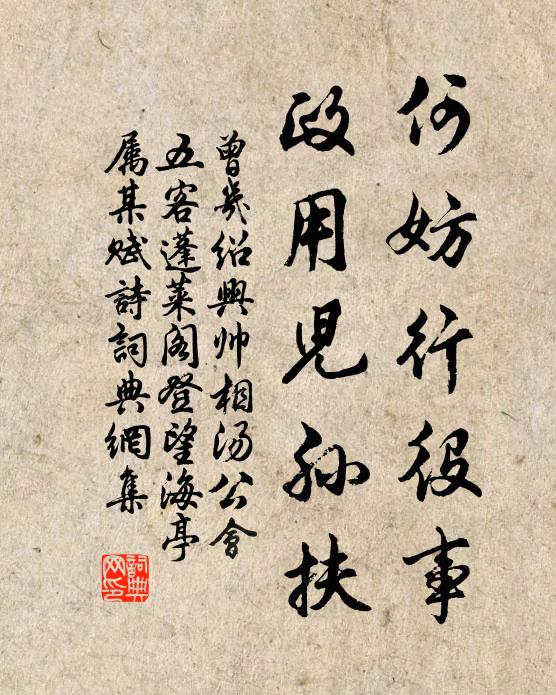 何妨行役事
政用児孙扶
曾几绍興帅相汤公會
五客蓬莱阁登望海亭
属某赋詩詞典網集
詞典网印